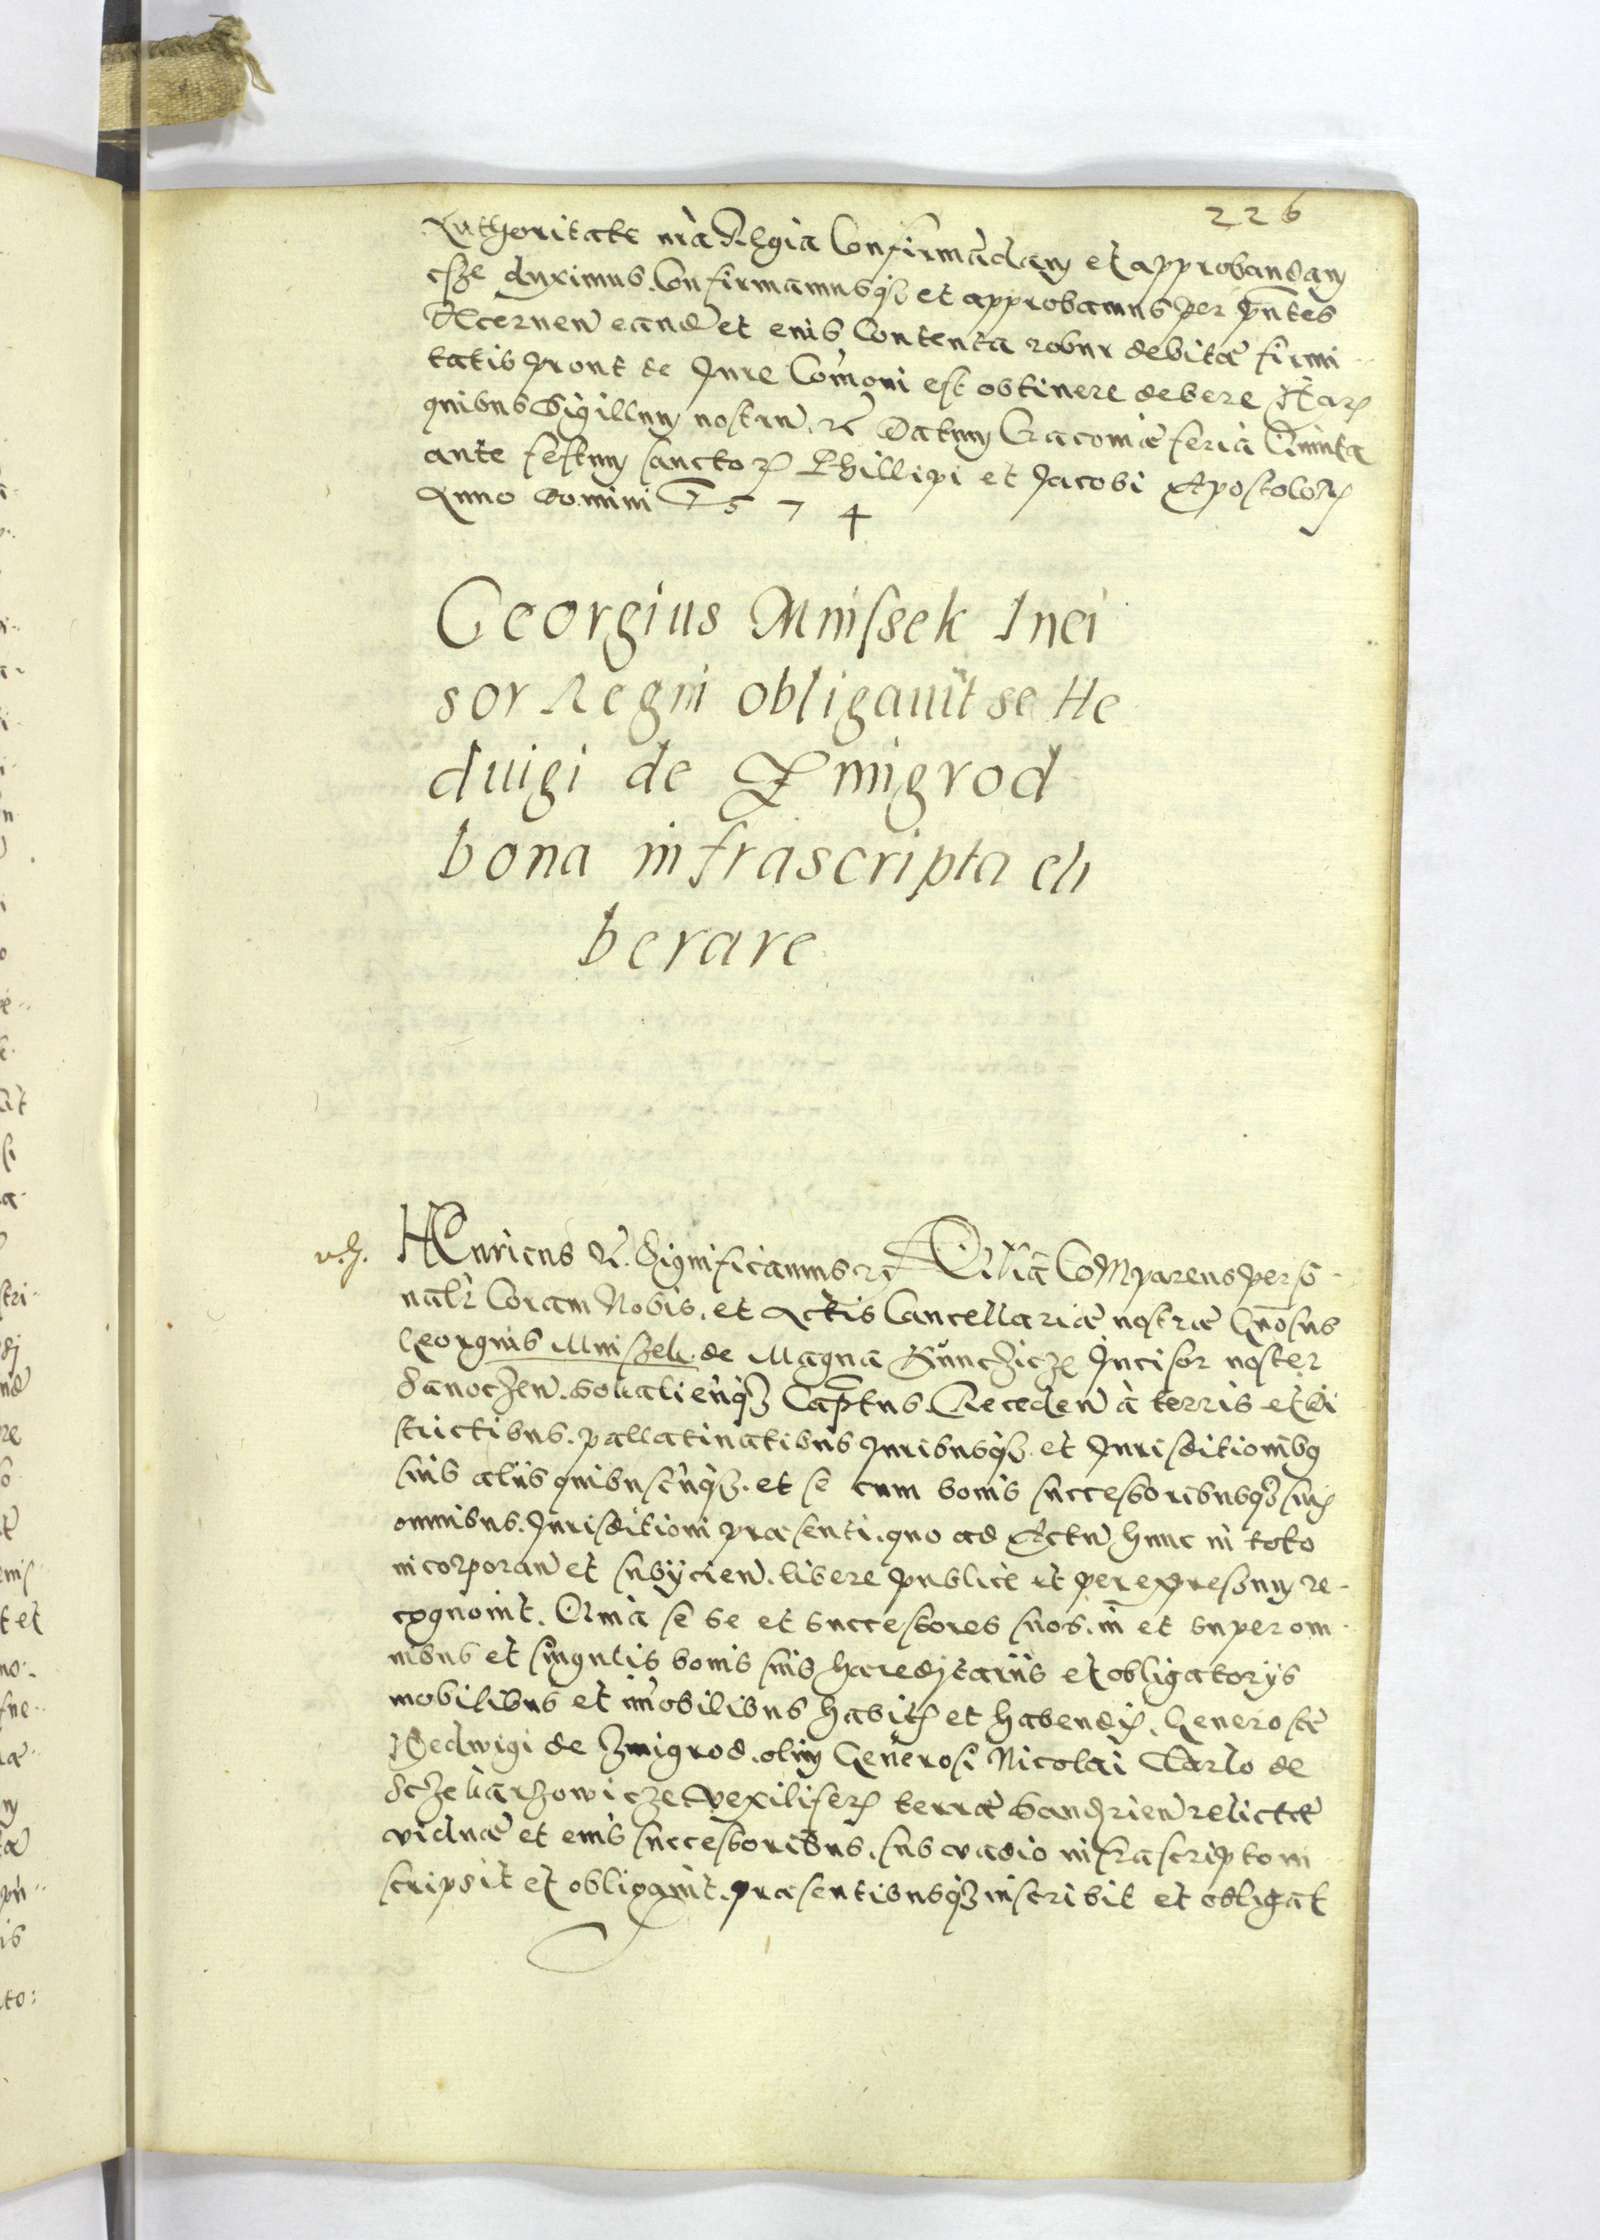 226
Authoritate nrã Regia Confirmãdam et approbandam
esse duximus. Confirmamusq3 et approbamus per pñtes
Decernen eand et eius Contenta robur debitæ firmi
tatis prout de Jure Com̃oni est obtinere debere Har
quibus Sigillum nostrum. rc Datum Cracoviæ feria Quinta
ante festum sanctor Phillipi et Jacobi Apostolor
Anno Domini 1574
Georgius Mnissek Inci
sor Regni obligauit se He
duigi de Zmigrod
bona infrascripta eli
berare
HEnricus rc. Significamus rc Quia COMparens perso
nalr Coram Nobis. et Actis Cancellariæ nostræ Gnosus
Georgius Mniszek de Magna Kunczicze Incisor noster
Sanoczen. Sokalienq3 Captus. Receden à terris et di
strictibus. pallatinatibus Juribusq3. et Jurisditionibq
suis aliis quibuscunq3. et se cum bonis successoribusq3 suis
omnibus. Jurisditioni præsenti. quo ad Actu hunc in toto
incorporan et subycien. libere publicè et per expressum re
cognouit. Quia se se et successores suos. in et super om
nibus et singulis bonis suis hæredytariis et obligatorys
mobilibus et im̃obilibus habit et habend. Generosæ
Hedwigi de Zmigrod. olim Generosi Nicolai Tarlo de
Sczekarzowicze Vexiliferi terræ Sandrien relictæ
viduæ et eius successoribus. sub vadio infrascripto in
scripsit et obligauit. præsentibusq3 inscribit et obligat